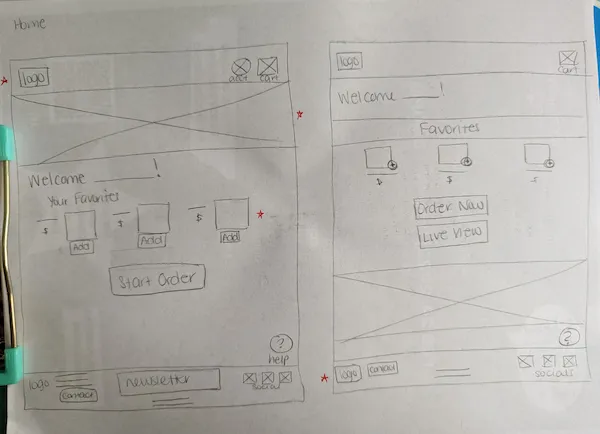 Home
logo
acct cart
Welcome ______!
Your Favorites
$ $ $
Add Add Add
Start Order
?
help
logo
contact
newsletter
social
logo
cart
Welcome ____!
Favorites
+ + +
$ $ $
Order Now
Live View
?
logo
contact
socials